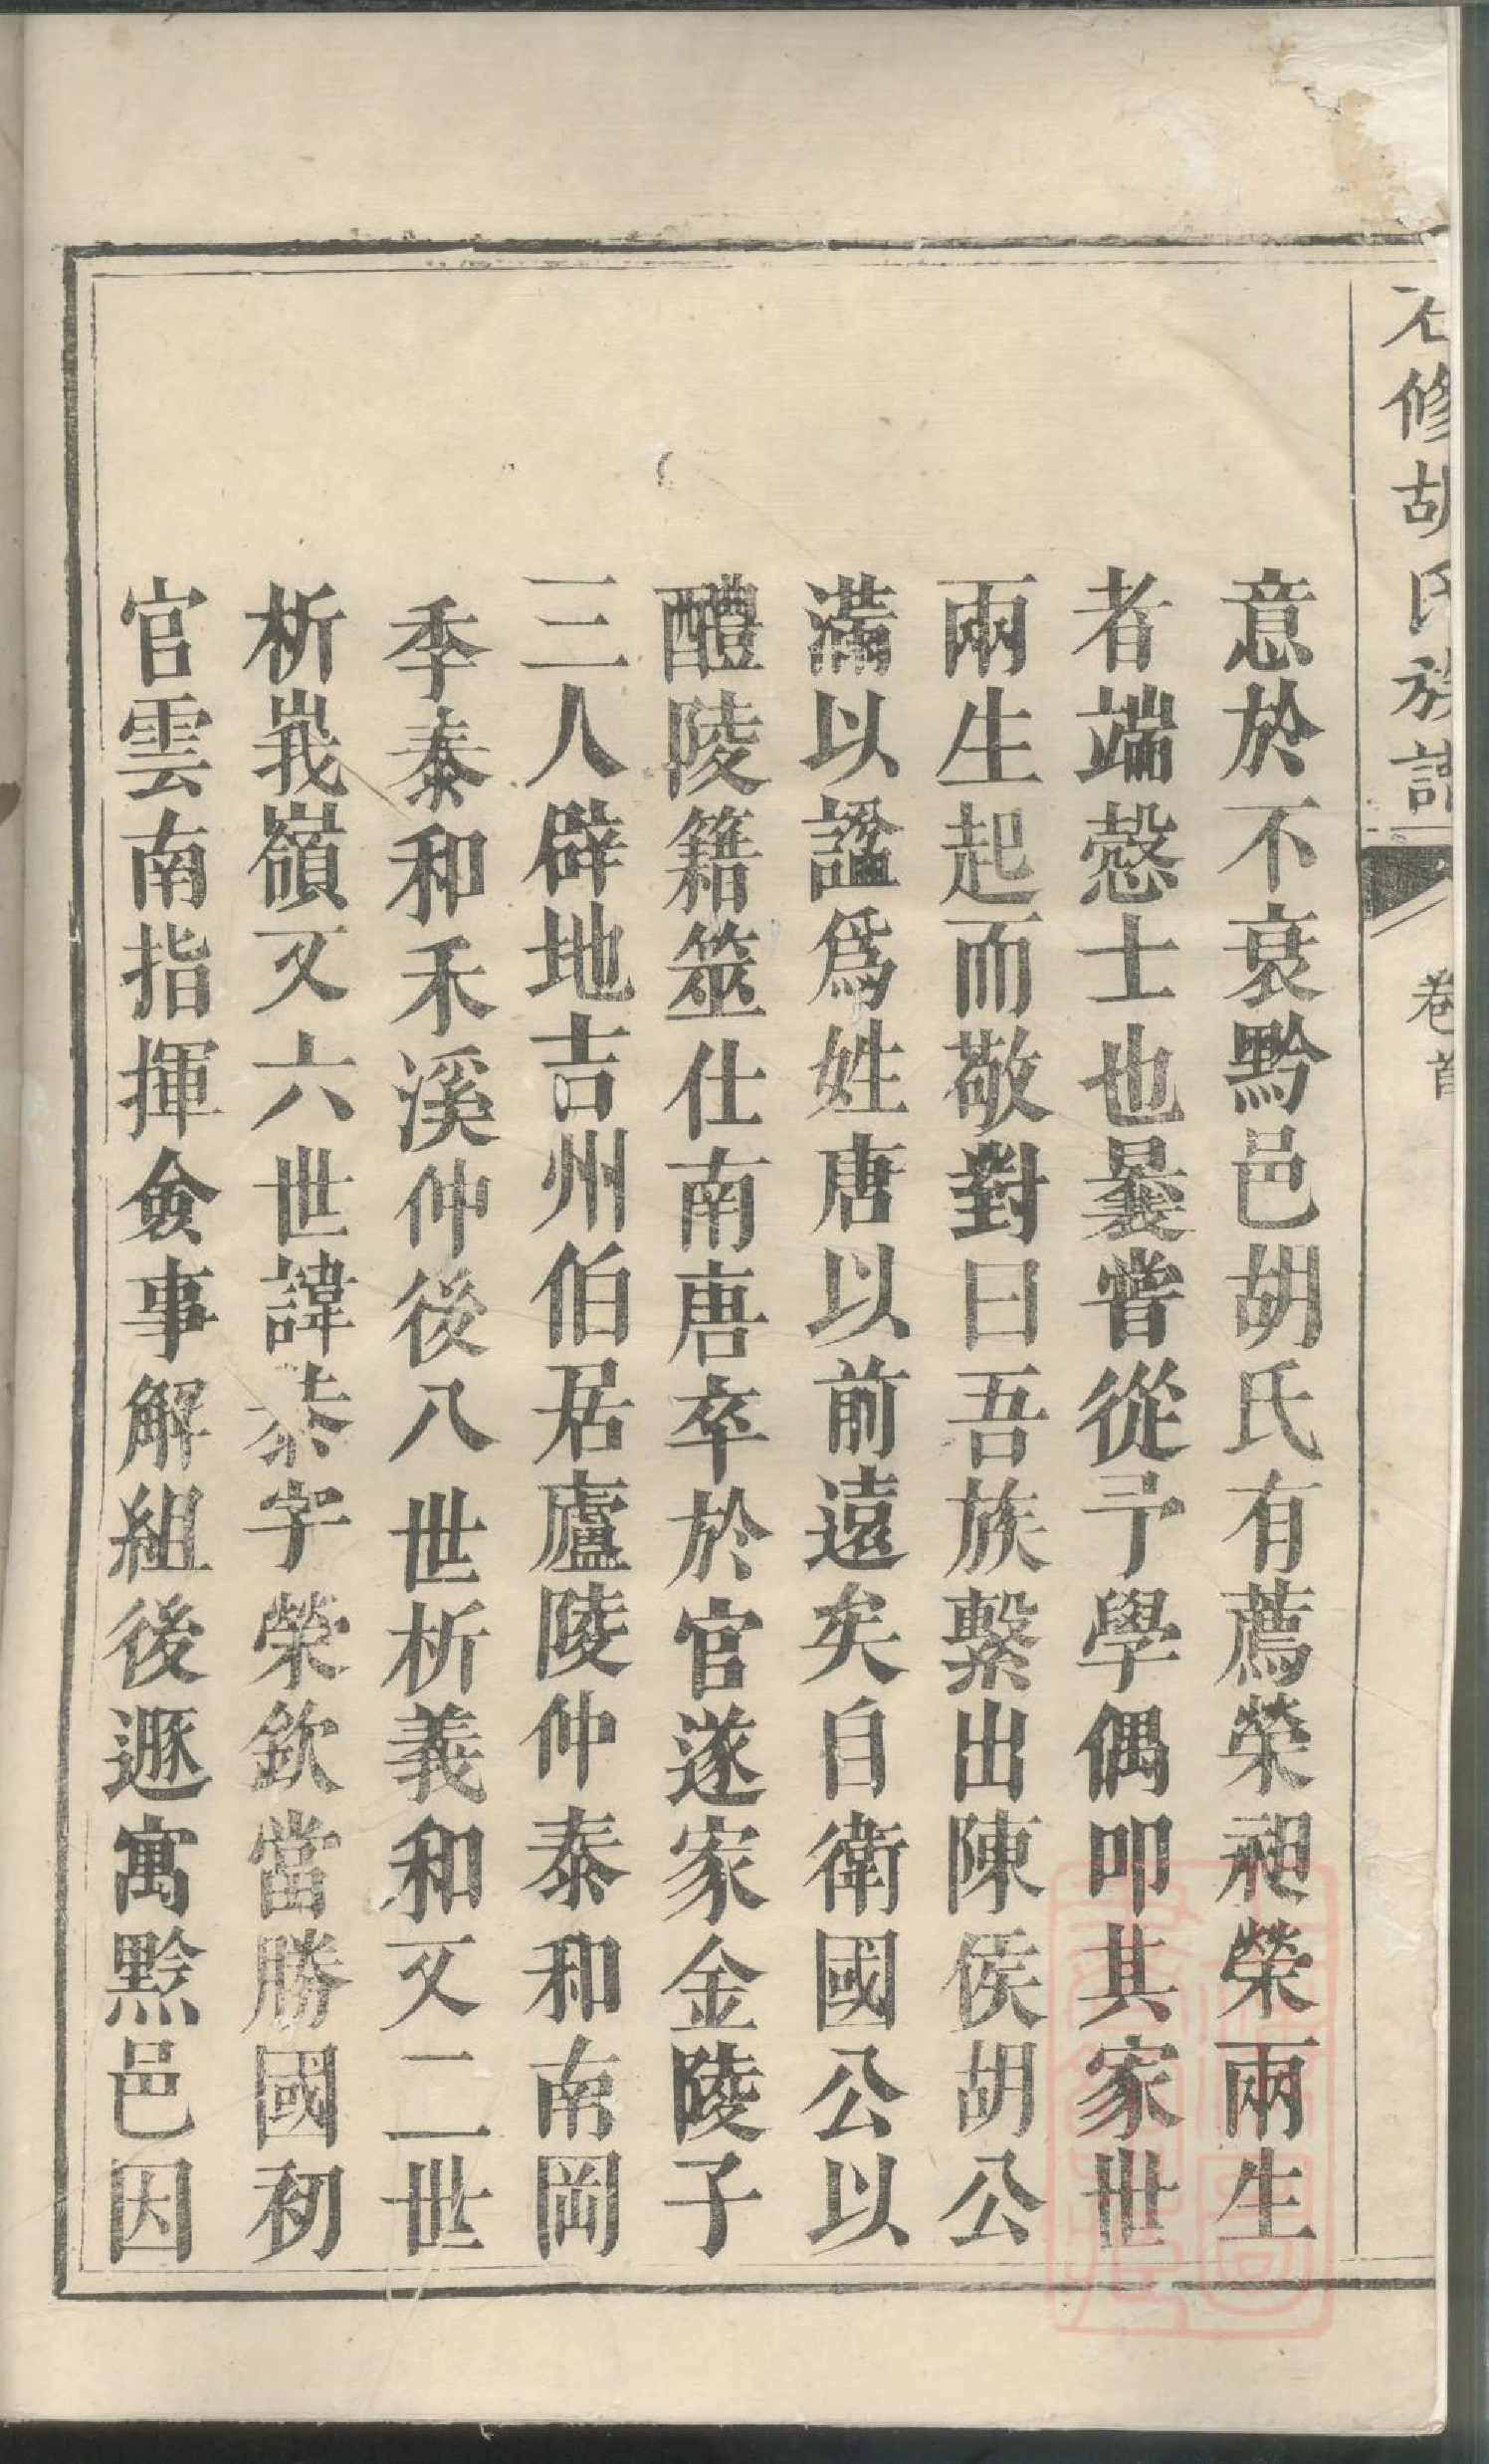 修胡氏族譜
卷首
意於不衰黔邑胡氏有薦榮昶榮兩生
者端慤士也曩嘗從予學偶叩其家世
兩生起而敬對曰吾族繫出陳侯胡公
滿以諡爲姓唐以前遠矣自衛國公以
醴陵籍筮仕南唐卒於官遂家金陵子
三人辟地吉州伯居廬陵仲泰和南岡
季泰和禾溪仲後八世析義和又二世
析峩嶺又六世諱泰字榮欽當勝國初
官雲南指揮僉事解組後遯寓黔邑因